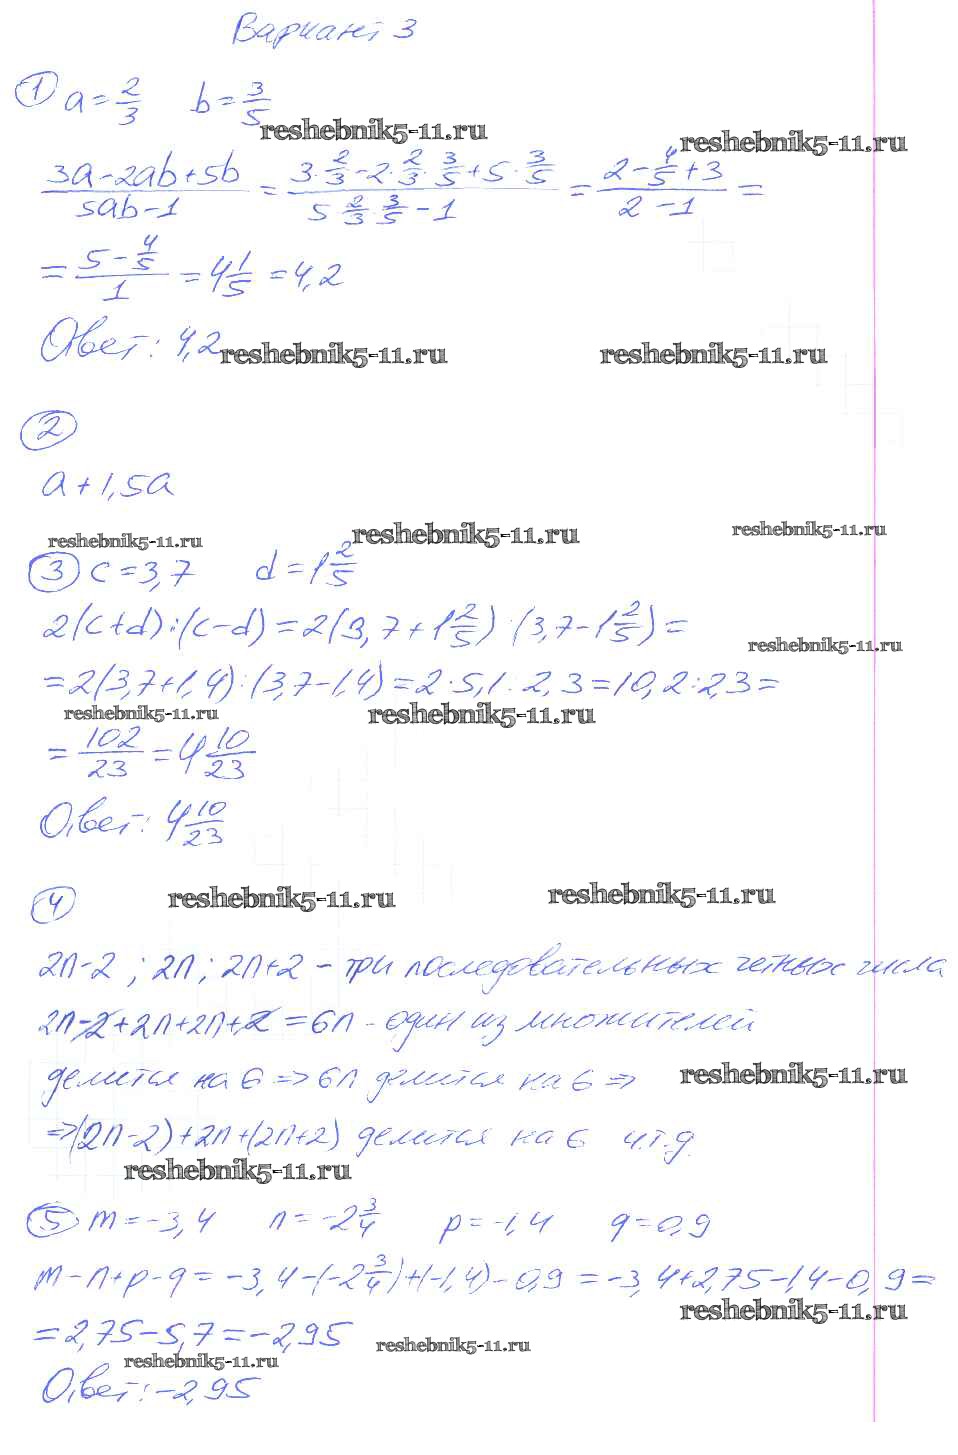 Вариант 3
① a = 2/3 b = 3/5
reshebnik5-11.ru
reshebnik5-11.ru
(3a - 2ab + 5b)/(5ab - 1) = (3 · 2/3 - 2 · 2/3 · 3/5 + 5 · 3/5)/(5 · 2/3 · 3/5 - 1) = (2 - 4/5 + 3)/(2 - 1) =
= (5 - 4/5)/1 = 4 1/5 = 4,2
Ответ: 4,2
reshebnik5-11.ru
reshebnik5-11.ru
②
a + 1,5a
reshebnik5-11.ru
reshebnik5-11.ru
reshebnik5-11.ru
③ c = 3,7 d = 1 2/5
2(c+d):(c-d) = 2(3,7 + 1 2/5) : (3,7 - 1 2/5) =
reshebnik5-11.ru
= 2(3,7+1,4):(3,7-1,4) = 2·5,1:2,3 = 10,2:2,3 =
reshebnik5-11.ru
reshebnik5-11.ru
= 102/23 = 4 10/23
Ответ: 4 10/23
④
reshebnik5-11.ru
reshebnik5-11.ru
2n-2 ; 2n ; 2n+2 - три последовательных четных числа
2n-2+2n+2n+2 = 6n - один из множителей
делится на 6 => 6n делится на 6 =>
reshebnik5-11.ru
=> (2n-2)+2n+(2n+2) делится на 6 ч.т.д.
reshebnik5-11.ru
⑤ m = -3,4 n = -2 3/4 p = -1,4 q = 0,9
m - n + p - q = -3,4 - (-2 3/4) + (-1,4) - 0,9 = -3,4 + 2,75 - 1,4 - 0,9 =
reshebnik5-11.ru
= 2,75 - 5,7 = -2,95
reshebnik5-11.ru
reshebnik5-11.ru
Ответ: -2,95